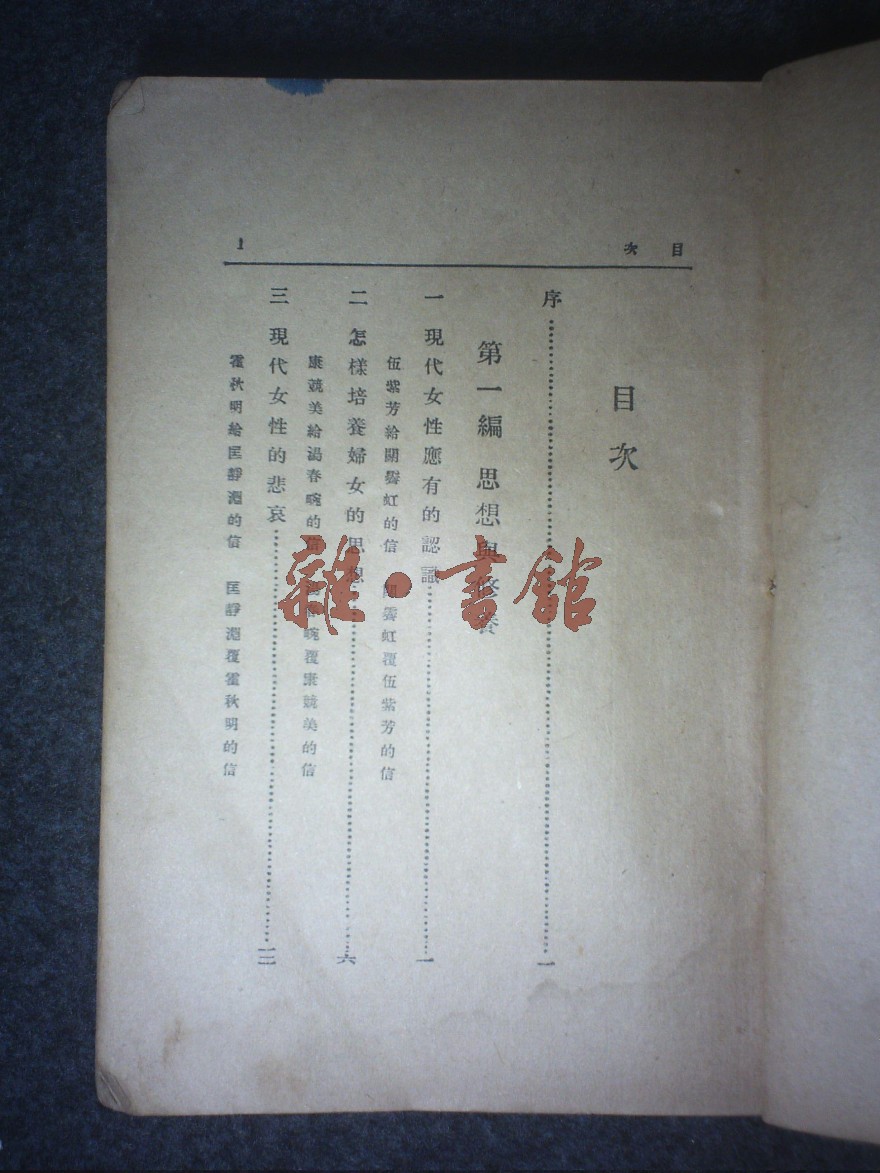 目次
1
目次
序…………一
第一編 思想與修養
一 現代女性應有的認識…………一
伍紫芳給關雲虹的信 關雲虹覆伍紫芳的信
二 怎樣培養婦女的思想…………六
康競美給湯春畹的信 湯春畹覆康競美的信
三 現代女性的悲哀…………三
霍秋明給匡靜遐的信 匡靜遐覆霍秋明的信
雜·書館